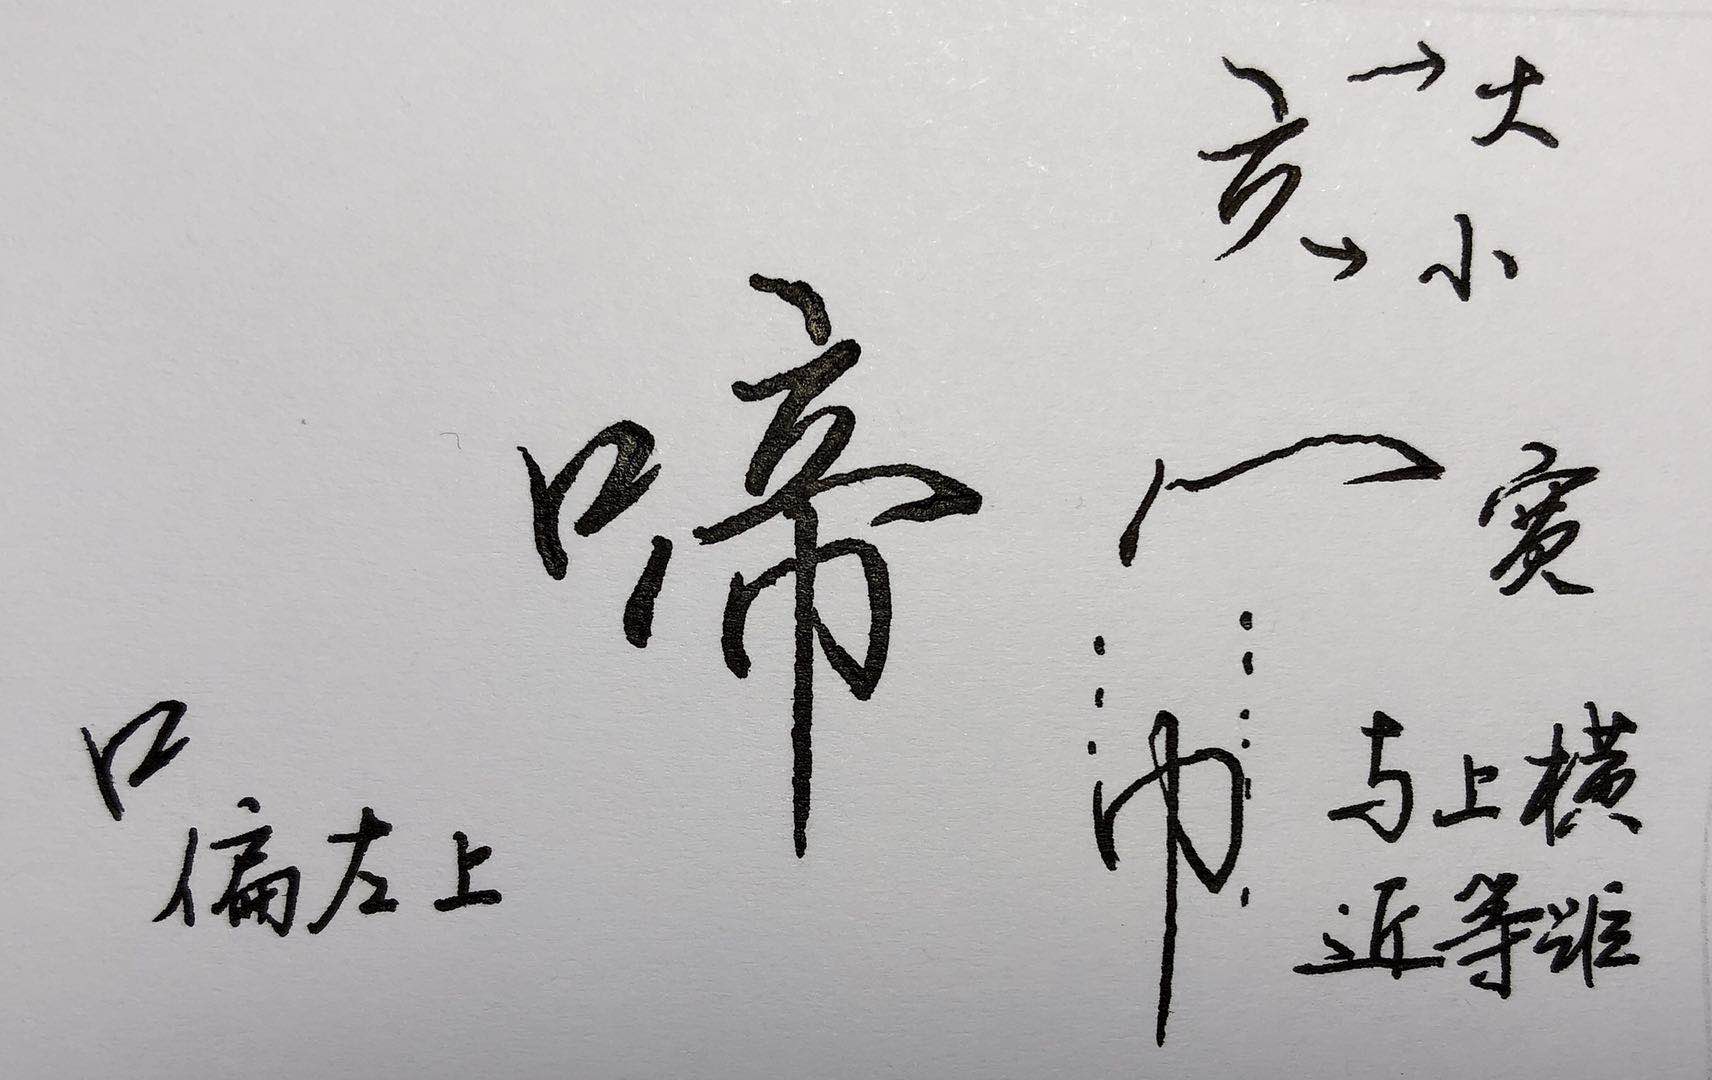 → 大
→ 小
啼
寬
口
偏左上
巾 与上横
近等距